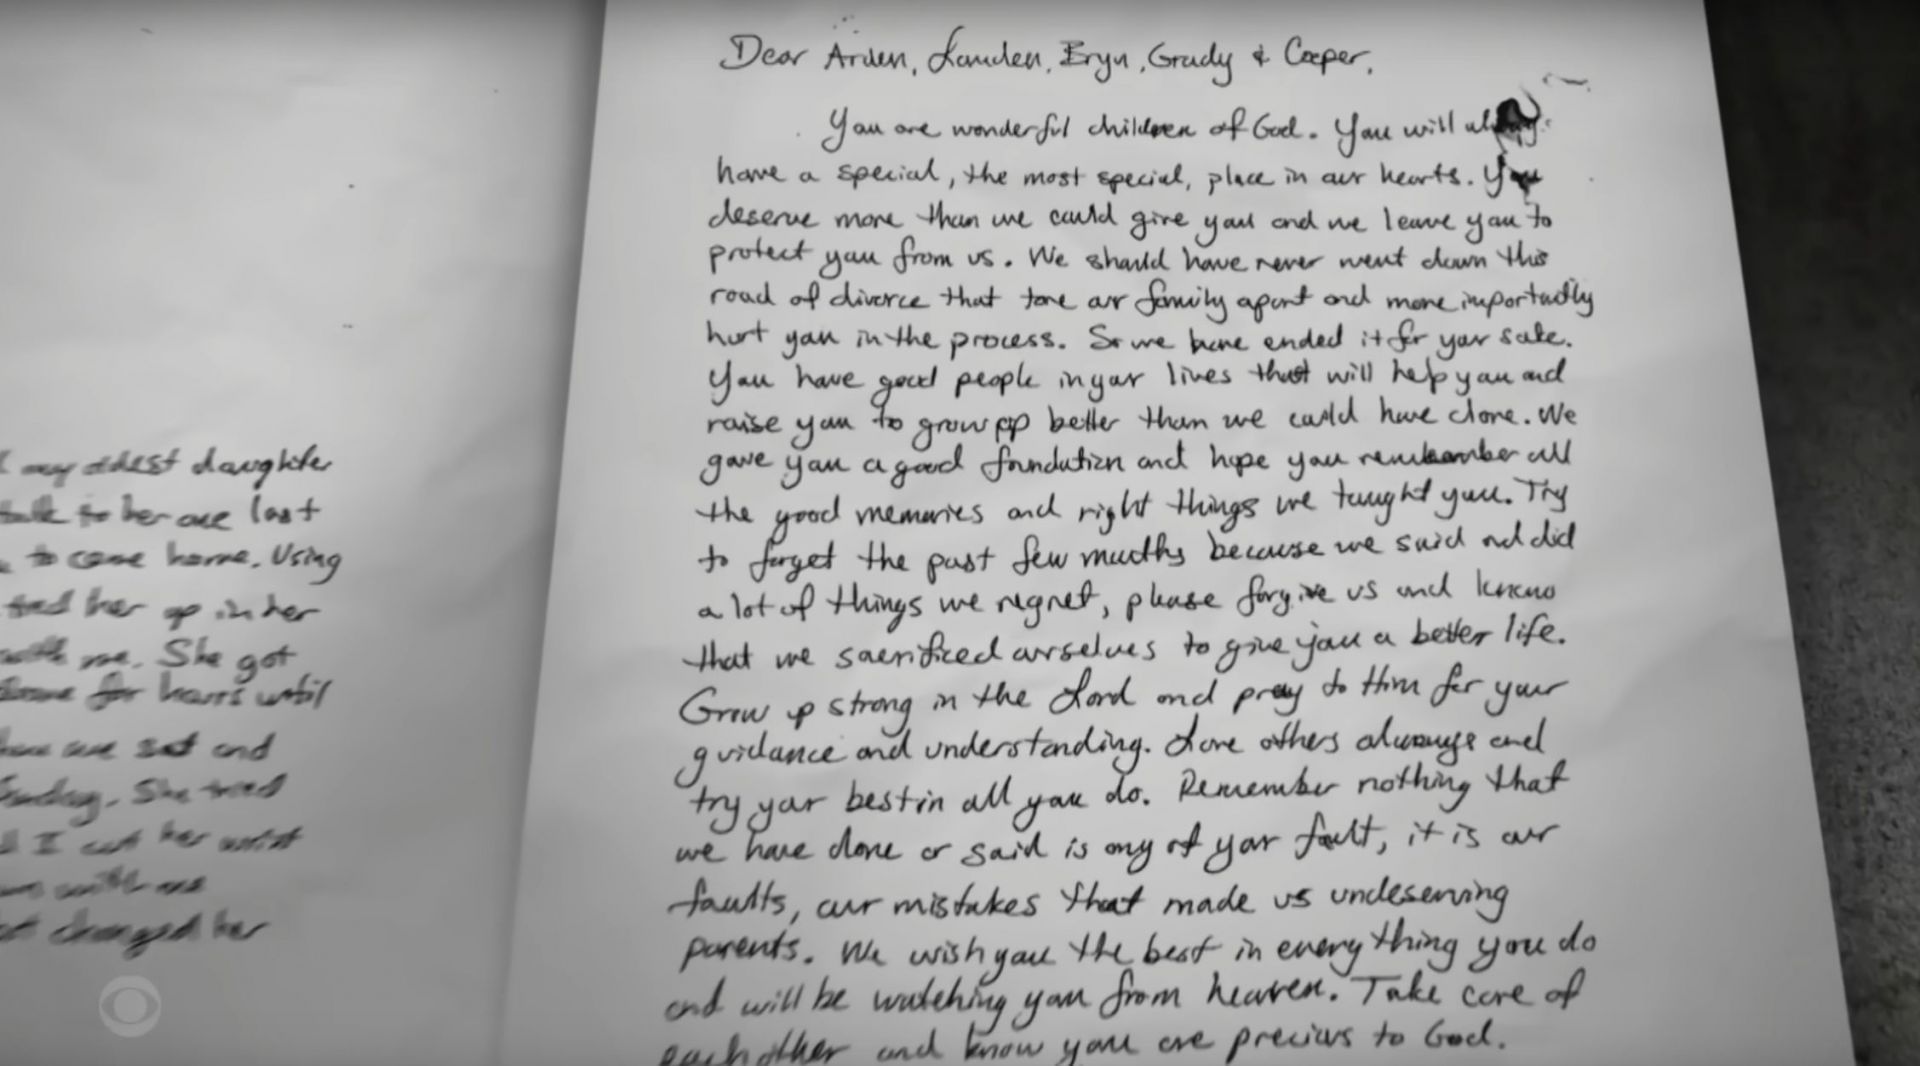 my oldest daughter
talk to her one last
to come home. Using
tied her up in her
with me. She got
for hours until
sat and
Sunday. She tried
I cut her wrist
with me
changed her
Dear Arden, Landen, Eryn, Grady & Cooper,
You are wonderful children of God. You will always
have a special, the most special, place in our hearts. You
deserve more than we could give you and we leave you to
protect you from us. We should have never went down this
road of divorce that tore our family apart and more importantly
hurt you in the process. So we have ended it for your sake.
You have good people in your lives that will help you and
raise you to grow up better than we could have done. We
gave you a good foundation and hope you remember all
the good memories and right things we taught you. Try
to forget the past few months because we said and did
a lot of things we regret, please forgive us and know
that we sacrificed ourselves to give you a better life.
Grow up strong in the Lord and pray to Him for your
guidance and understanding. Love others always and
try your best in all you do. Remember nothing that
we have done or said is any of your fault, it is our
faults, our mistakes that made us undeserving
parents. We wish you the best in everything you do
and will be watching you from heaven. Take care of
each other and know you are precious to God.